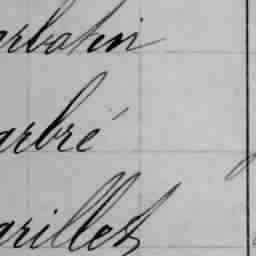 arbatin
arbré
arillet